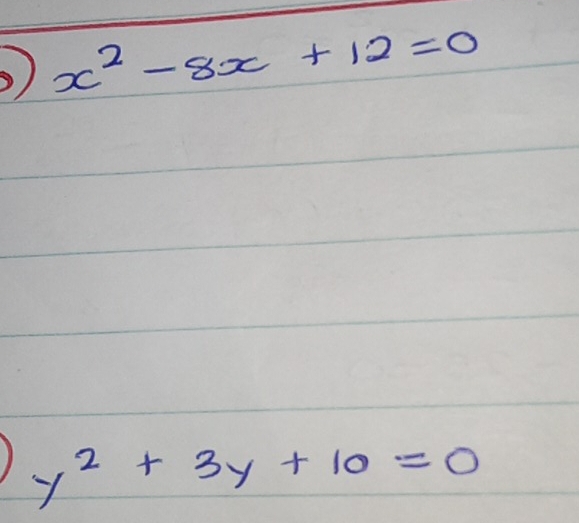 ) x² - 8x + 12 = 0
) y² + 3y + 10 = 0